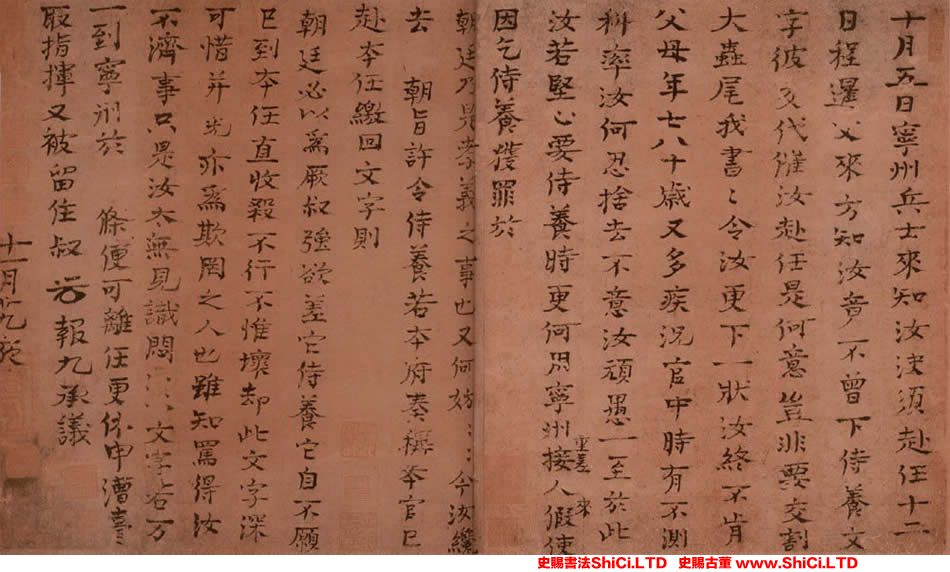 十月五日寧州兵士來知汝決須赴任十二
日程暹父來方知汝竟不曾下侍養文
字彼交代催汝赴任是何意豈非要交割
大蟲尾我書〻令汝更下一狀汝終不肯
父母年七八十歲又多疾況官中時有不測
科率汝何忍捨去不意汝頑愚一至於此
汝若堅心要侍養時更何用寧州接人假使
重差 來
因乞侍養獲罪於
朝廷乃是孝義之事也又何妨〻〻今汝纔
去 朝旨許令侍養若本府奏稱本官已
赴本任繳回文字則
朝廷必以為厥叔強欲差它侍養它自不願
已到本任直收殺不行不惟壞却此文字深
可惜并光亦為欺罔之人也雖知罵得汝
不濟事只是汝太無見識悶 文字若万
一到寧州於 條便可離任更休申漕臺
取指揮又被留住叔 報九承議
十一月
史賜書法ShiCi.LTD 史賜古董 www.ShiCi.LTD